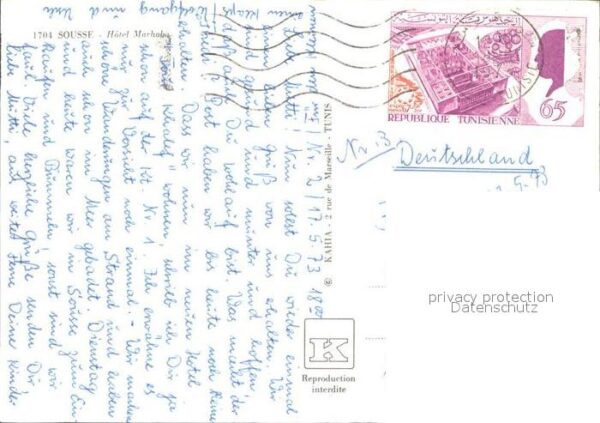 1704 SOUSSE - Hôtel Marhaba
الجمهورية التونسية
REPUBLIQUE TUNISIENNE
65
Nr. 2/17.5.73 18
Liebe Mutti! Nun sollst Du wieder einmal
einen lieben Gruß von uns erhalten. Wir
sind gesund und munter und hoffen
daß auch Du wohlauf bist. Was macht der
Post haben wir bis heute noch keine
erhalten. Dass wir nun im neuen Hotel
Khalef" wohnen, schrieb ich Dir ja
schon auf der Kt. Nr. 1. Ich erwähne es
zur Vorsicht noch einmal. - Wir machen
schöne Wanderungen am Strand und haben
auch schon im Meer gebadet. Dienstag
und heute waren wir in Sousse zum Ein-
kaufen und Bummeln, sonst sind wir
faul. Viele herzliche Grüße senden Dir
liebe Mutti, aus weiter Ferne Deine Kinder
Wolfgang
und
© KAHIA - 2 rue de Marseille - TUNIS
Deutschland
K
Reproduction
interdite
privacy protection
Datenschutz